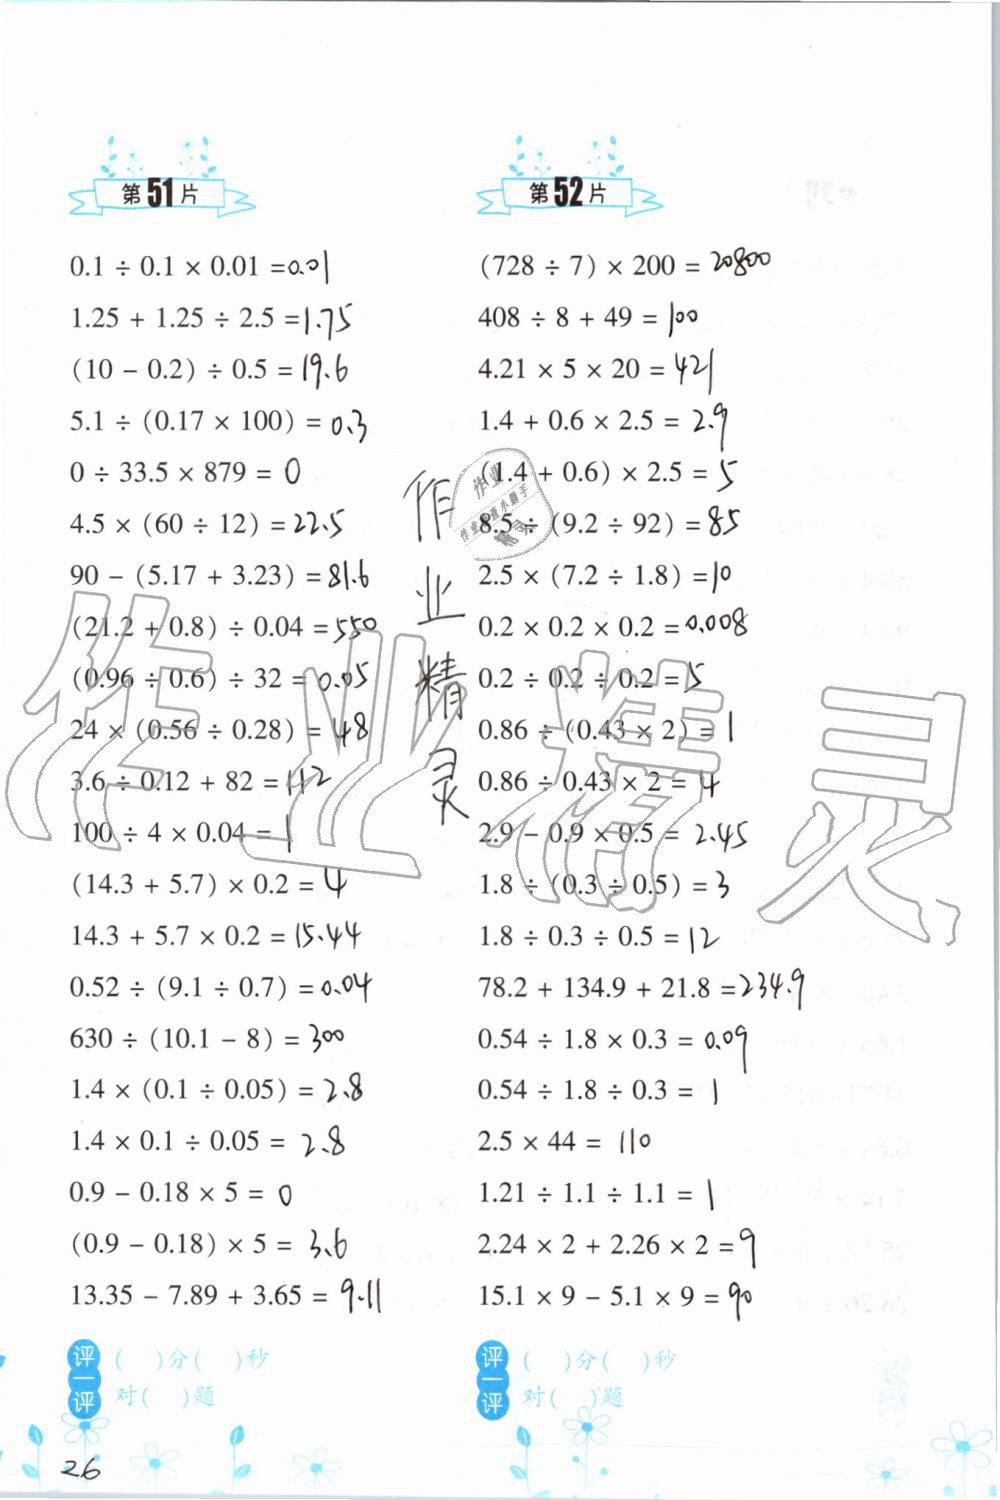 第51片
0.1 ÷ 0.1 × 0.01 =0.01
1.25 + 1.25 ÷ 2.5 =1.75
(10 − 0.2) ÷ 0.5 =19.6
5.1 ÷ (0.17 × 100) = 0.3
0 ÷ 33.5 × 879 = 0
4.5 × (60 ÷ 12) =22.5
90 − (5.17 + 3.23) =81.6
(21.2 + 0.8) ÷ 0.04 =550
(0.96 ÷ 0.6) ÷ 32 = 0.05
24 × (0.56 ÷ 0.28) = 48
3.6 ÷ 0.12 + 82 =112
100 ÷ 4 × 0.04 = 1
(14.3 + 5.7) × 0.2 = 4
14.3 + 5.7 × 0.2 = 15.44
0.52 ÷ (9.1 ÷ 0.7) =0.04
630 ÷ (10.1 − 8) = 300
1.4 × (0.1 ÷ 0.05) = 2.8
1.4 × 0.1 ÷ 0.05 = 2.8
0.9 − 0.18 × 5 = 0
(0.9 − 0.18) × 5 = 3.6
13.35 − 7.89 + 3.65 = 9.11
评一评
( )分( )秒
对( )题
第52片
(728 ÷ 7) × 200 = 20800
408 ÷ 8 + 49 = 100
4.21 × 5 × 20 = 421
1.4 + 0.6 × 2.5 = 2.9
(1.4 + 0.6) × 2.5 = 5
8.5 ÷ (9.2 ÷ 92) = 85
2.5 × (7.2 ÷ 1.8) =10
0.2 × 0.2 × 0.2 =0.008
0.2 ÷ 0.2 ÷ 0.2 =5
0.86 ÷ (0.43 × 2) = 1
0.86 ÷ 0.43 × 2 = 4
2.9 − 0.9 × 0.5 = 2.45
1.8 ÷ (0.3 ÷ 0.5) = 3
1.8 ÷ 0.3 ÷ 0.5 =12
78.2 + 134.9 + 21.8 =234.9
0.54 ÷ 1.8 × 0.3 = 0.09
0.54 ÷ 1.8 ÷ 0.3 = 1
2.5 × 44 = 110
1.21 ÷ 1.1 ÷ 1.1 = 1
2.24 × 2 + 2.26 × 2 =9
15.1 × 9 − 5.1 × 9 = 90
评一评
( )分( )秒
对( )题
作业精灵
作业精灵
26